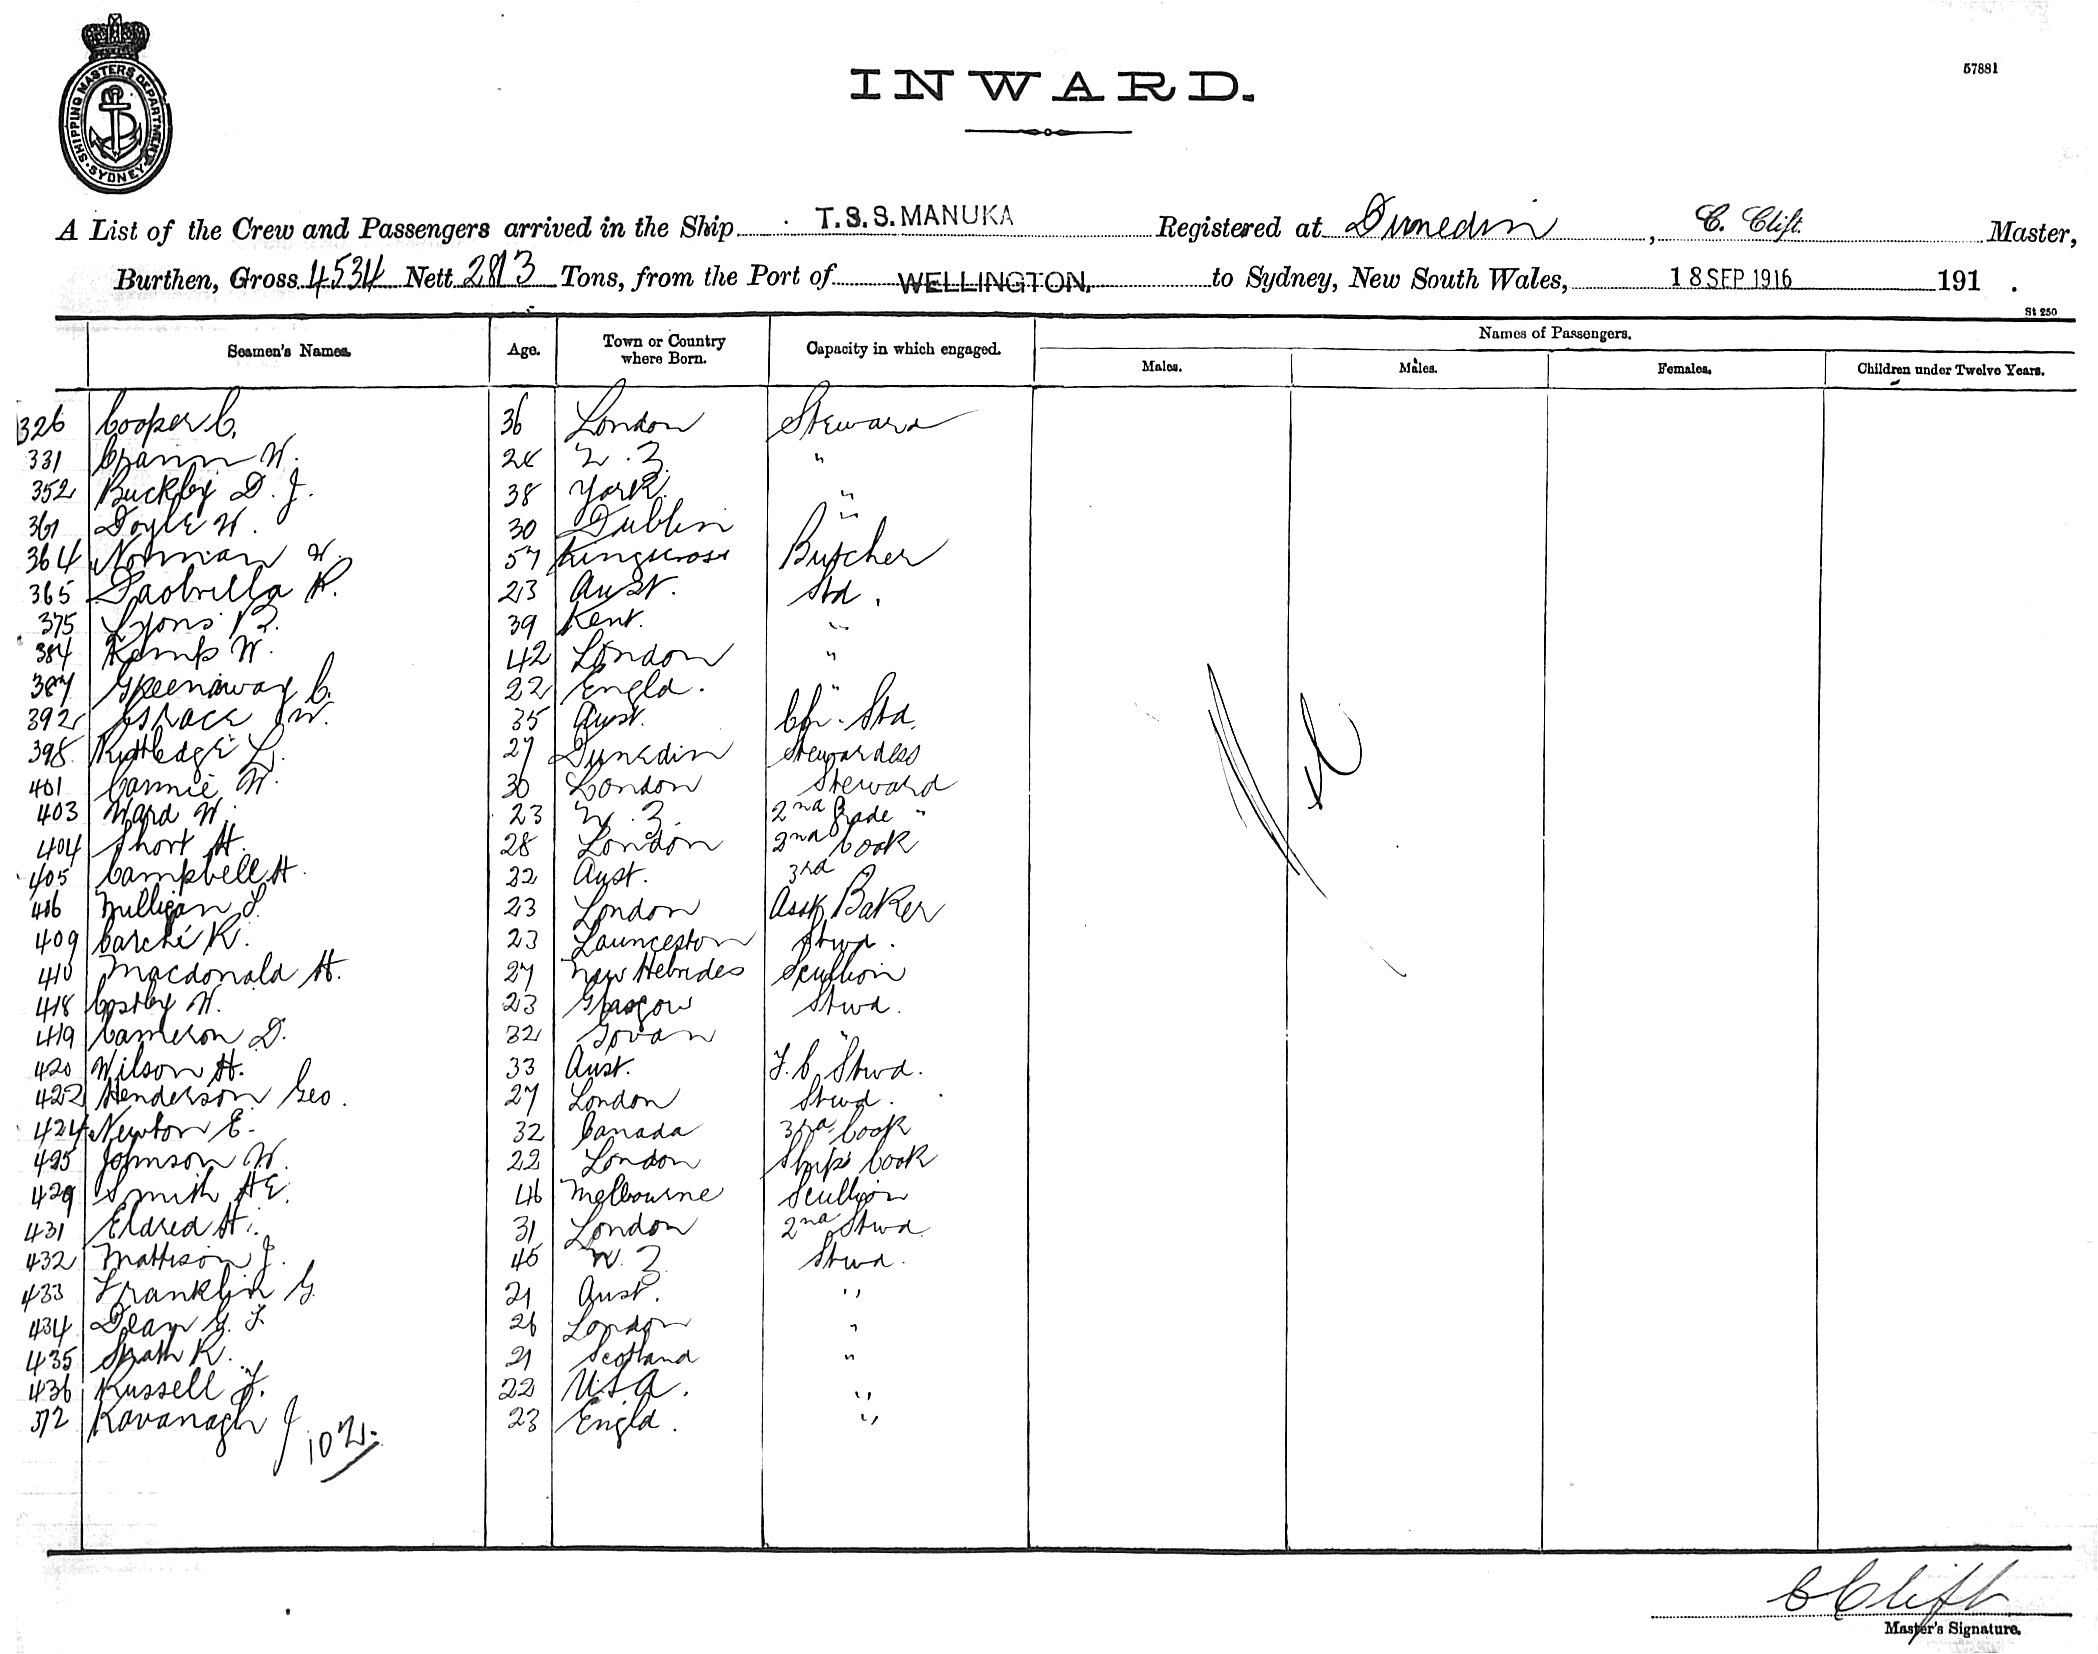 SHIPPING MASTERS DEPARTMENT SYDNEY
57881
INWARD.
A List of the Crew and Passengers arrived in the Ship T.S.S. MANUKA Registered at Dunedin, C. Clift. Master,
Burthen, Gross 4534 Nett 2813 Tons, from the Port of WELLINGTON. to Sydney, New South Wales, 18 SEP 1916 191 .
St 250
Seamen's Names. Age. Town or Country where Born. Capacity in which engaged. Names of Passengers.
Males. Males. Females. Children under Twelve Years.
326 Cooper C. 36 London Steward
331 W. 24 N.Z. "
352 Buckby D. J. 38 York "
361 Doyle W. 30 Dublin "
364 Norman W. 57 Kingscross Butcher
365 R. 23 Aust. Std.
375 Lyons B. 39 Kent. "
384 Kemp W. 42 London "
387 Greenaway C. 22 Engld. "
392 Grace W. 35 Aust. Ch. Std.
398 Rutledge L. 27 Dunedin Stewardess
401 W. 30 London Steward
403 Ward W. 23 N.Z. 2nd Grade "
404 Short H. 28 London 2nd Cook
405 Campbell H. 22 Aust. 3rd
406 Milligan 23 London Asst Baker
409 Carché R. 23 Launceston Stwd.
410 Macdonald H. 27 New Hebrides Scullion
418 Costby W. 23 Glasgow Stwd.
419 Cameron D. 32 Govan "
420 Wilson H. 33 Aust. F.C Stwd.
422 Henderson Geo. 27 London Stwd.
424 Newton E. 32 Canada 3rd Cook
425 Johnson W. 22 London Ships Cook
429 Smith H E. 46 Melbourne Scullion
431 Eldred H. 31 London 2nd Stwd.
432 Mattison J. 45 N.Z. Stwd.
433 Franklin G. 21 Aust. "
434 Dean G. F. 26 London "
435 Strath R. 21 Scotland "
436 Russell F. 22 U.S.A. "
372 Kavanagh J 23 Engld. "
102.
C Clift
Master's Signature.